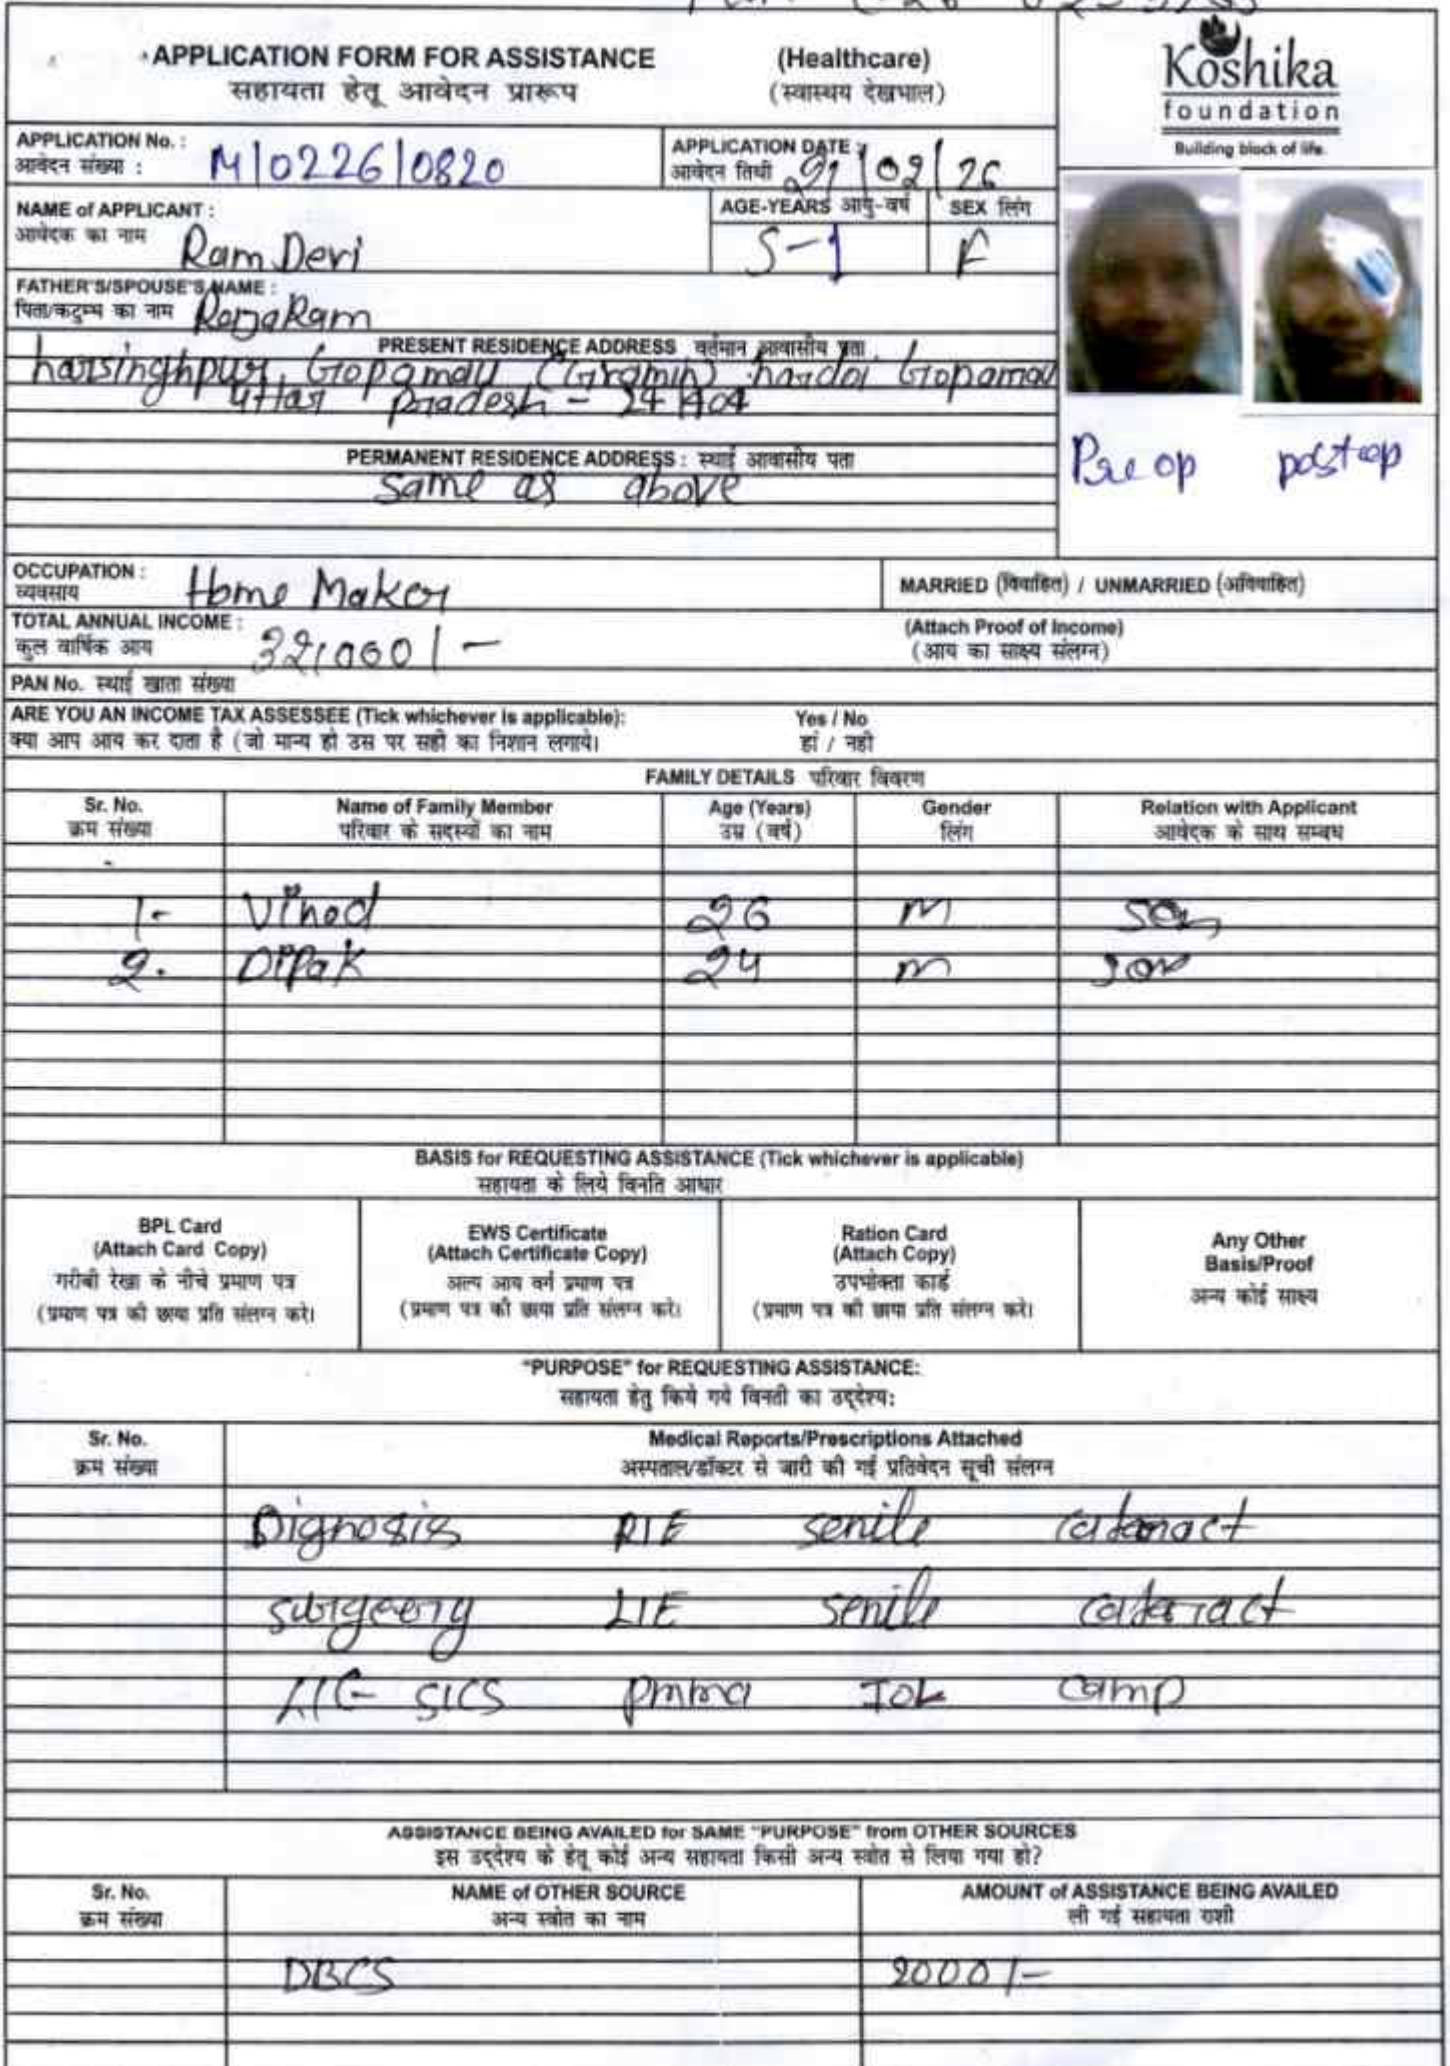 APPLICATION FORM FOR ASSISTANCE (Healthcare)
सहायता हेतू आवेदन प्रारूप (स्वास्थय देखभाल)
Koshika
foundation
Building block of life.
APPLICATION No. :
आवेदन संख्या : M/0226/0820
APPLICATION DATE :
आवेदन तिथी 21/02/26
NAME of APPLICANT :
आवेदक का नाम Ram Devi
AGE-YEARS आयु-वर्ष 5-1
SEX लिंग F
FATHER'S/SPOUSE'S NAME :
पिता/कटुम्ब का नाम RajaRam
PRESENT RESIDENCE ADDRESS वर्तमान आवासीय पता
harsinghpur, Gopamau (Gramin) hardoi Gopamau
Uttar pradesh - 241404
Pre op postop
PERMANENT RESIDENCE ADDRESS : स्थाई आवासीय पता
same as above
OCCUPATION :
व्यवसाय Home Maker
MARRIED (विवाहित) / UNMARRIED (अविवाहित)
TOTAL ANNUAL INCOME :
कुल वार्षिक आय 32,000/-
(Attach Proof of Income)
(आय का साक्ष्य संलग्न)
PAN No. स्थाई खाता संख्या
ARE YOU AN INCOME TAX ASSESSEE (Tick whichever is applicable): Yes / No
क्या आप आय कर दाता है (जो मान्य हो उस पर सही का निशान लगाये। हां / नही
FAMILY DETAILS परिवार विवरण
Sr. No. Name of Family Member Age (Years) Gender Relation with Applicant
क्रम संख्या परिवार के सदस्यों का नाम उम्र (वर्ष) लिंग आवेदक के साथ सम्बध
1- Vinod 26 m son
2. Dipak 24 m son
BASIS for REQUESTING ASSISTANCE (Tick whichever is applicable)
सहायता के लिये विनति आधार
BPL Card
(Attach Card Copy)
गरीबी रेखा के नीचे प्रमाण पत्र
(प्रमाण पत्र की छाया प्रति संलग्न करे।
EWS Certificate
(Attach Certificate Copy)
अल्प आय वर्ग प्रमाण पत्र
(प्रमाण पत्र की छाया प्रति संलग्न करे।
Ration Card
(Attach Copy)
उपभोक्ता कार्ड
(प्रमाण पत्र की छाया प्रति संलग्न करे।
Any Other
Basis/Proof
अन्य कोई साक्ष्य
"PURPOSE" for REQUESTING ASSISTANCE:
सहायता हेतु किये गये विनती का उद्देश्य:
Sr. No. Medical Reports/Prescriptions Attached
क्रम संख्या अस्पताल/डॉक्टर से जारी की गई प्रतिवेदन सूची संलग्न
Dignosis R/E senile cataract
surgeery L/E senile cataract
L/E SICS pmma IOL camp
ASSISTANCE BEING AVAILED for SAME "PURPOSE" from OTHER SOURCES
इस उद्देश्य के हेतू कोई अन्य सहायता किसी अन्य स्त्रोत से लिया गया हो?
Sr. No. NAME of OTHER SOURCE AMOUNT of ASSISTANCE BEING AVAILED
क्रम संख्या अन्य स्त्रोत का नाम ली गई सहायता राशी
DBCS 2000/-